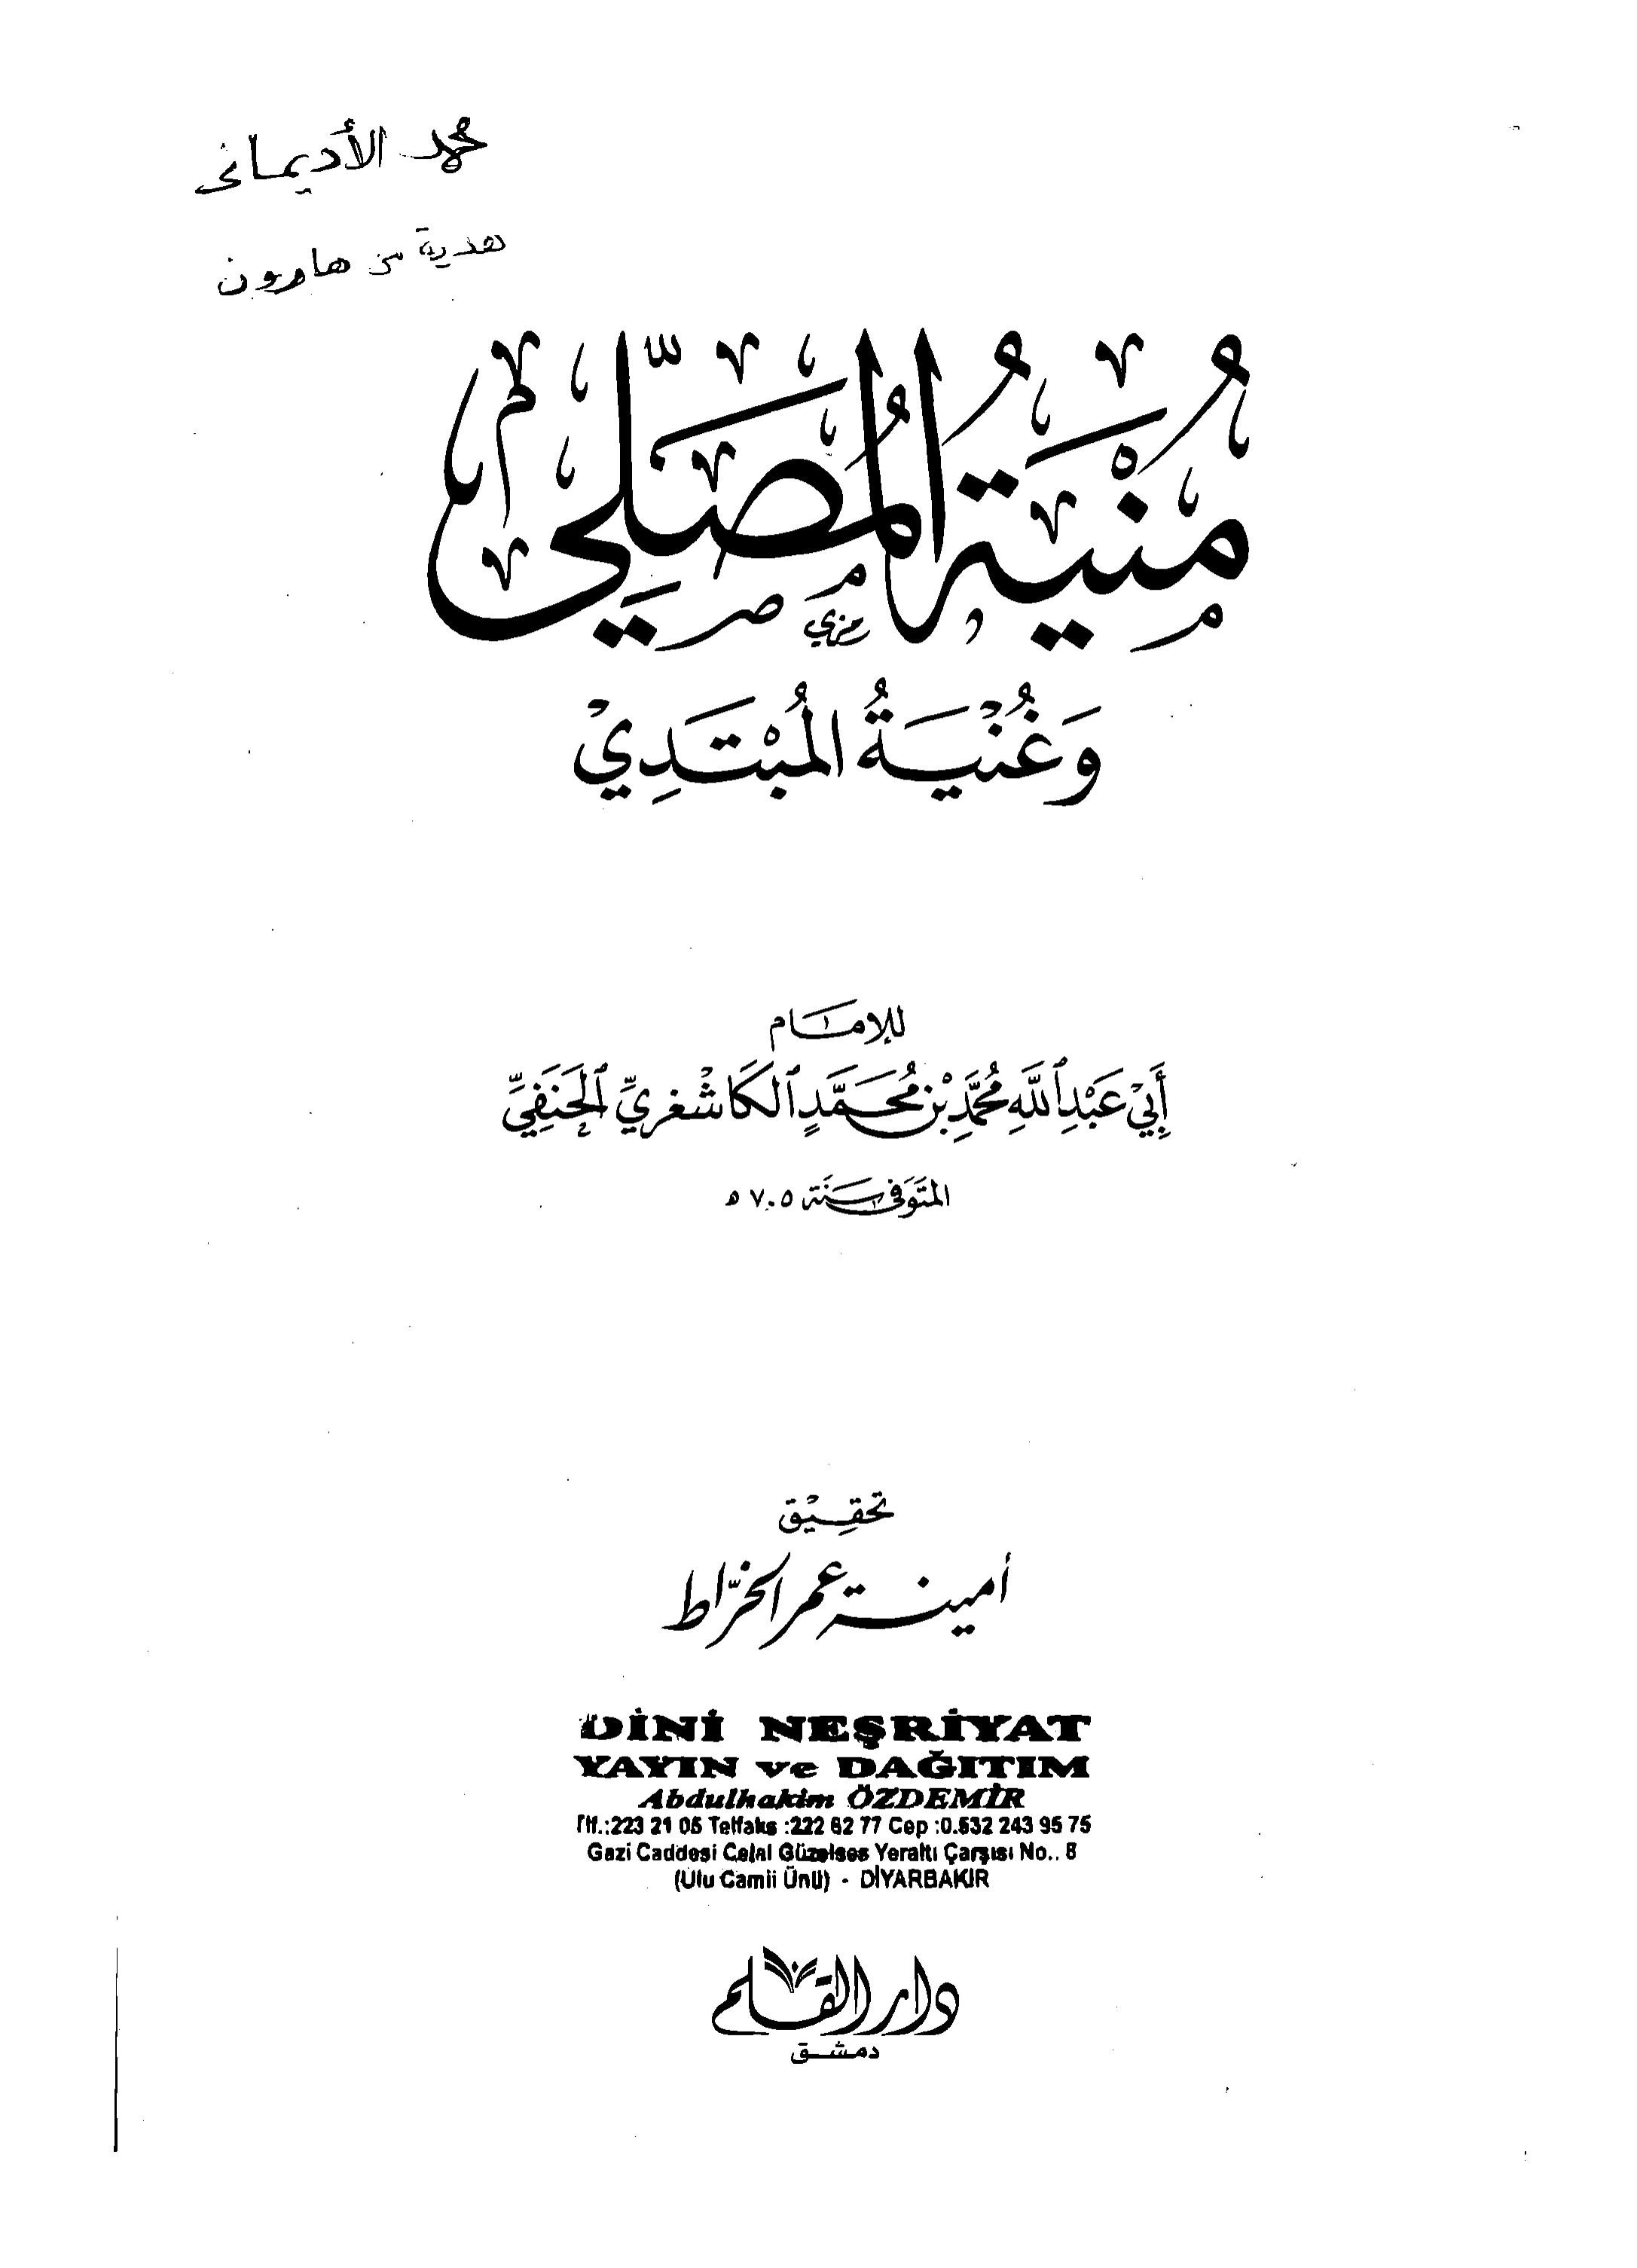 محمد الأديمانى
هدية من هارون
مُنْيَةُ المُصَلِّي
وَغُنْيَةُ المُبْتَدِيْ
للإمام
أَبِيْ عَبْدِ ٱللَّهِ مُحَمَّدِ بْنِ مُحَمَّدٍ ٱلكَاشْغَرِيِّ ٱلحَنَفِيِّ
المتَوَفى سَنَة ٧٠٥ ه
تحقِيْق
أمينة عمر الخرّاط
DİNİ NEŞRİYAT
YAYIN ve DAĞITIM
Abdulhakim ÖZDEMİR
Tlf.:223 21 05 Telfaks :222 62 77 Cep :0.532 243 95 75
Gazi Caddesi Celal Güzelses Yeraltı Çarşısı No.. 8
(Ulu Camii Önü) - DİYARBAKIR
دار القلم
دمشق